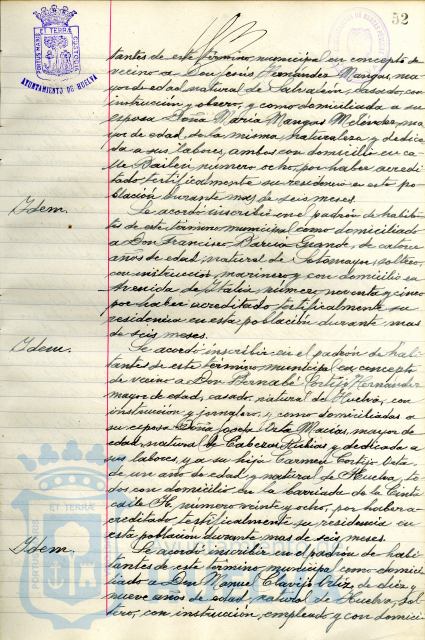 52
PORTUS MARIS ET TERRÆ CUSTODIA
AYUNTAMIENTO DE HUELVA
tantes de este término municipal en concepto de
vecino a Don Jesús Fernández Mangas, ma
yor de edad, natural de Salvación, casado, con
instrucción y obrero, y como domiciliada a su
esposa Doña María Mangas Melendez, ma
yor de edad, de la misma naturaleza y dedica
da a sus labores, ambos con domicilio en ca
lle Bailén número ocho, por haber acredi
tado testificalmente su residencia en esta po
blación durante mas de seis meses.
Idem.
Se acordó inscribir en el padrón de habi
tantes de este término municipal como domiciliado
a Don Francisco García Grande, de catorce
años de edad, natural de Sotomayor, soltero,
con instrucción, marinero y con domicilio en
Avenida de Italia número noventa y cinco
por haber acreditado testificalmente su
residencia en esta población durante mas
de seis meses.
Idem.
Se acordó inscribir en el padrón de habi
tantes de este término municipal en concepto
de vecino a Don Bernabé Cortijo Hernández
mayor de edad, casado, natural de Huelva, con
instrucción y jornalero, y como domiciliadas a
su esposa Doña Josefa Veta Macias, mayor de
edad, natural de Cabezas Rubias y dedicada a
sus labores, y a su hija Carmen Cortijo Veta
de un año de edad y natural de Huelva, to
dos con domicilio en la barriada de la Cinta
calle H, número veinte y ocho, por haber a-
creditado testificalmente su residencia en
esta población durante mas de seis meses.
Idem.
Se acordó inscribir en el padrón de habi
tantes de este término municipal como domici
liado a Don Manuel Clavijo Ortiz, de diez y
nueve años de edad, natural de Huelva, sol
tero, con instrucción, empleado y con domici-